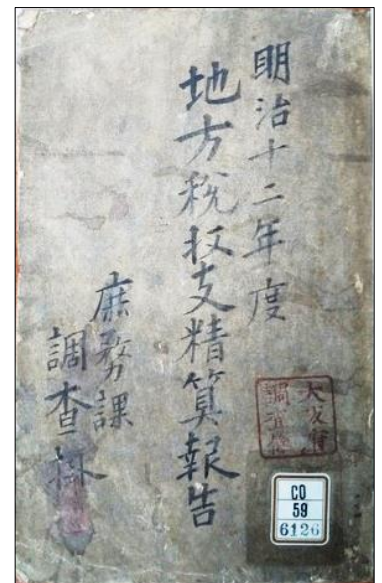 明治十二年度
地方税収支精算報告
庶務課
調査掛
大阪府
CO
59
6126